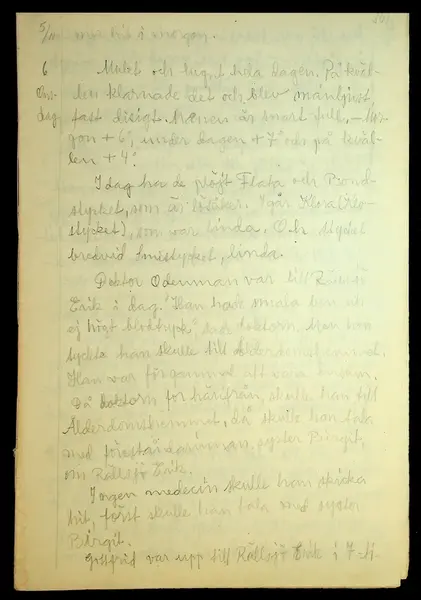 5/11 i morgon.
6 Mulet och lugnt hela dagen. På kväl-
Ons- len klarnade det och blev månljust,
dag fast disigt. Månen är snart full. – Mor-
gon + 6°, under dagen + 7° och på kväl-
len + 4°.
I dag ha de plöjt Flata och
stycket, som är Igår
stycket), som var linda. Och stycket
bredvid Smistycket, linda.
Doktor Odenman var till Rällsjö
Erik i dag. Han hade
ej högt blodtryck, sade doktorn. Men han
tyckte han skulle till ålderdomshemmet.
Han var för gammal att vara ensam.
Då doktorn for härifrån, skulle han till
Ålderdomshemmet, då skulle han tala
med föreståndarinnan, syster Birgit,
om Rällsjö Erik.
Ingen medecin skulle han skicka
hit, först skulle han tala med syster
Birgit.
Gottfrid var upp till Rällsjö Erik i 7-ti-